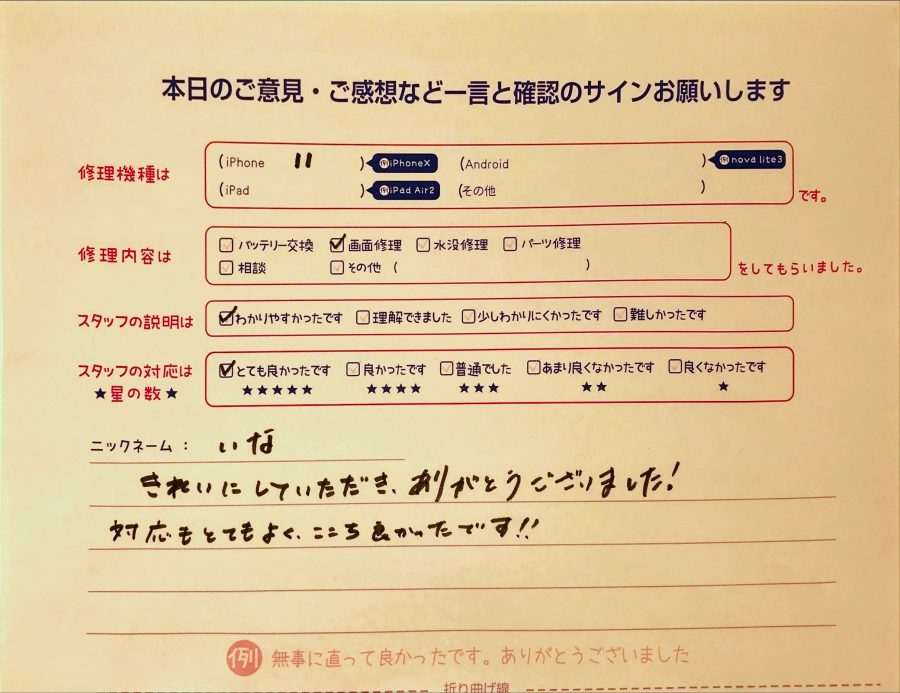 本日のご意見・ご感想など一言と確認のサインお願いします
修理機種は (iPhone 11 ) 例iPhoneX (Android ) 例nova lite3
(iPad ) 例iPad Air2 (その他 ) です。
修理内容は バッテリー交換 画面修理 水没修理 パーツ修理
相談 その他 ( ) をしてもらいました。
スタッフの説明は わかりやすかったです 理解できました 少しわかりにくかったです 難しかったです
スタッフの対応は とても良かったです 良かったです 普通でした あまり良くなかったです 良くなかったです
★星の数★ ★★★★★ ★★★★ ★★★ ★★ ★
ニックネーム： いな
きれいにしていただき、ありがとうございました!
対応もとてもよく、ここち良かったです!!
例 無事に直って良かったです。ありがとうございました
折り曲げ線